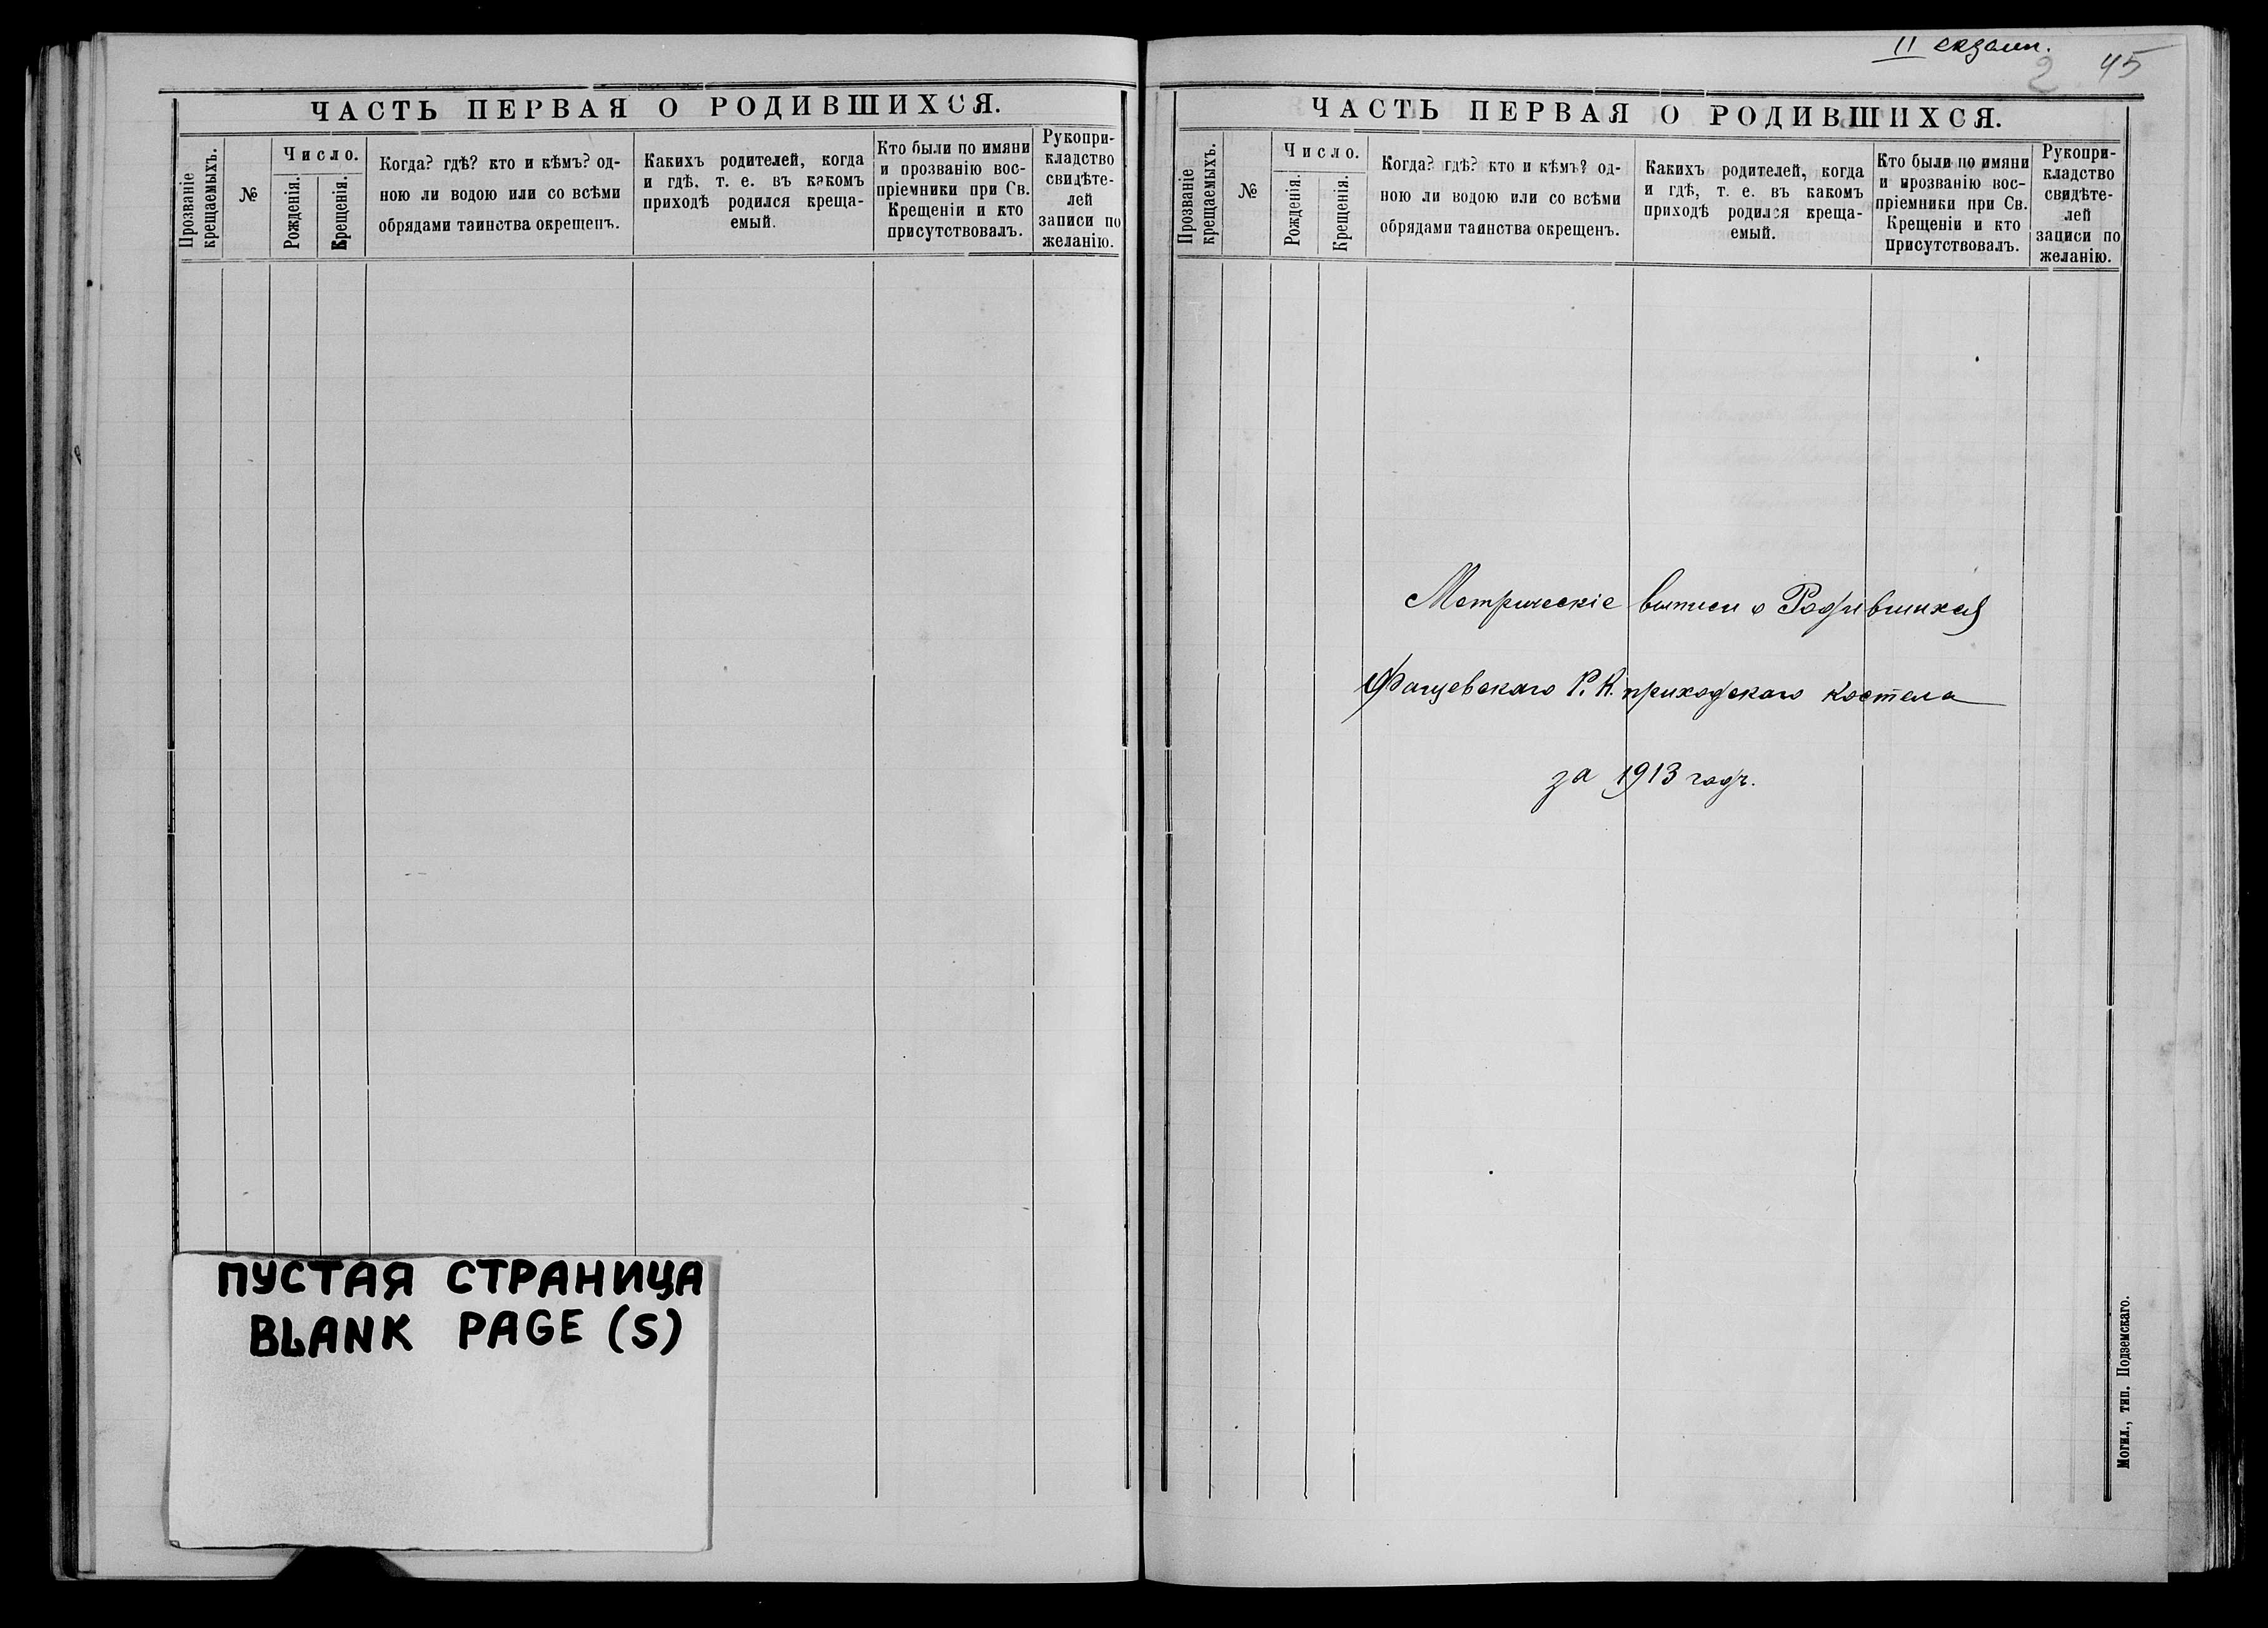 ЧАСТЬ ПЕРВАЯ О РОДИВШИХСЯ.
Прозваніе
крещаемыхъ.
№
Число.
Рожденія.
Крещенія.
Когда? гдѣ? кто и кѣмъ? од-
ною ли водою или со всѣми
обрядами таинства окрещенъ.
Какихъ родителей, когда
и гдѣ, т. е. въ какомъ
приходѣ родился креща-
емый.
Кто были по имяни
и прозванію вос-
пріемники при Св.
Крещеніи и кто
присутствовалъ.
Рукопри-
кладство
свидѣте-
лей
записи по
желанію.
ПУСТАЯ СТРАНИЦА
BLANK PAGE (S)
II екземп.
2 45
ЧАСТЬ ПЕРВАЯ О РОДИВШИХСЯ.
Прозваніе
крещаемыхъ.
№
Число.
Рожденія.
Крещенія.
Когда? гдѣ? кто и кѣмъ? од-
ною ли водою или со всѣми
обрядами таинства окрещенъ.
Какихъ родителей, когда
и гдѣ, т. е. въ каком
приходѣ родился креща-
емый.
Кто были по имяни
и прозванію вос-
пріемники при Св.
Крещеніи и кто
присутствовалъ.
Рукопри-
кладство
свидѣте-
лей
записи по
желанію.
Метрическіе выписи о Родившихся
Фащевскаго Р. К. приходскаго костела
за 1913 годъ.
Могил., тип. Подземскаго.